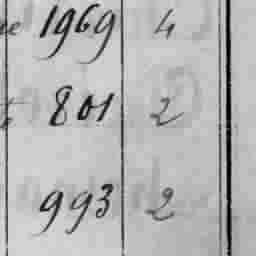 1969 4
801 2
993 2